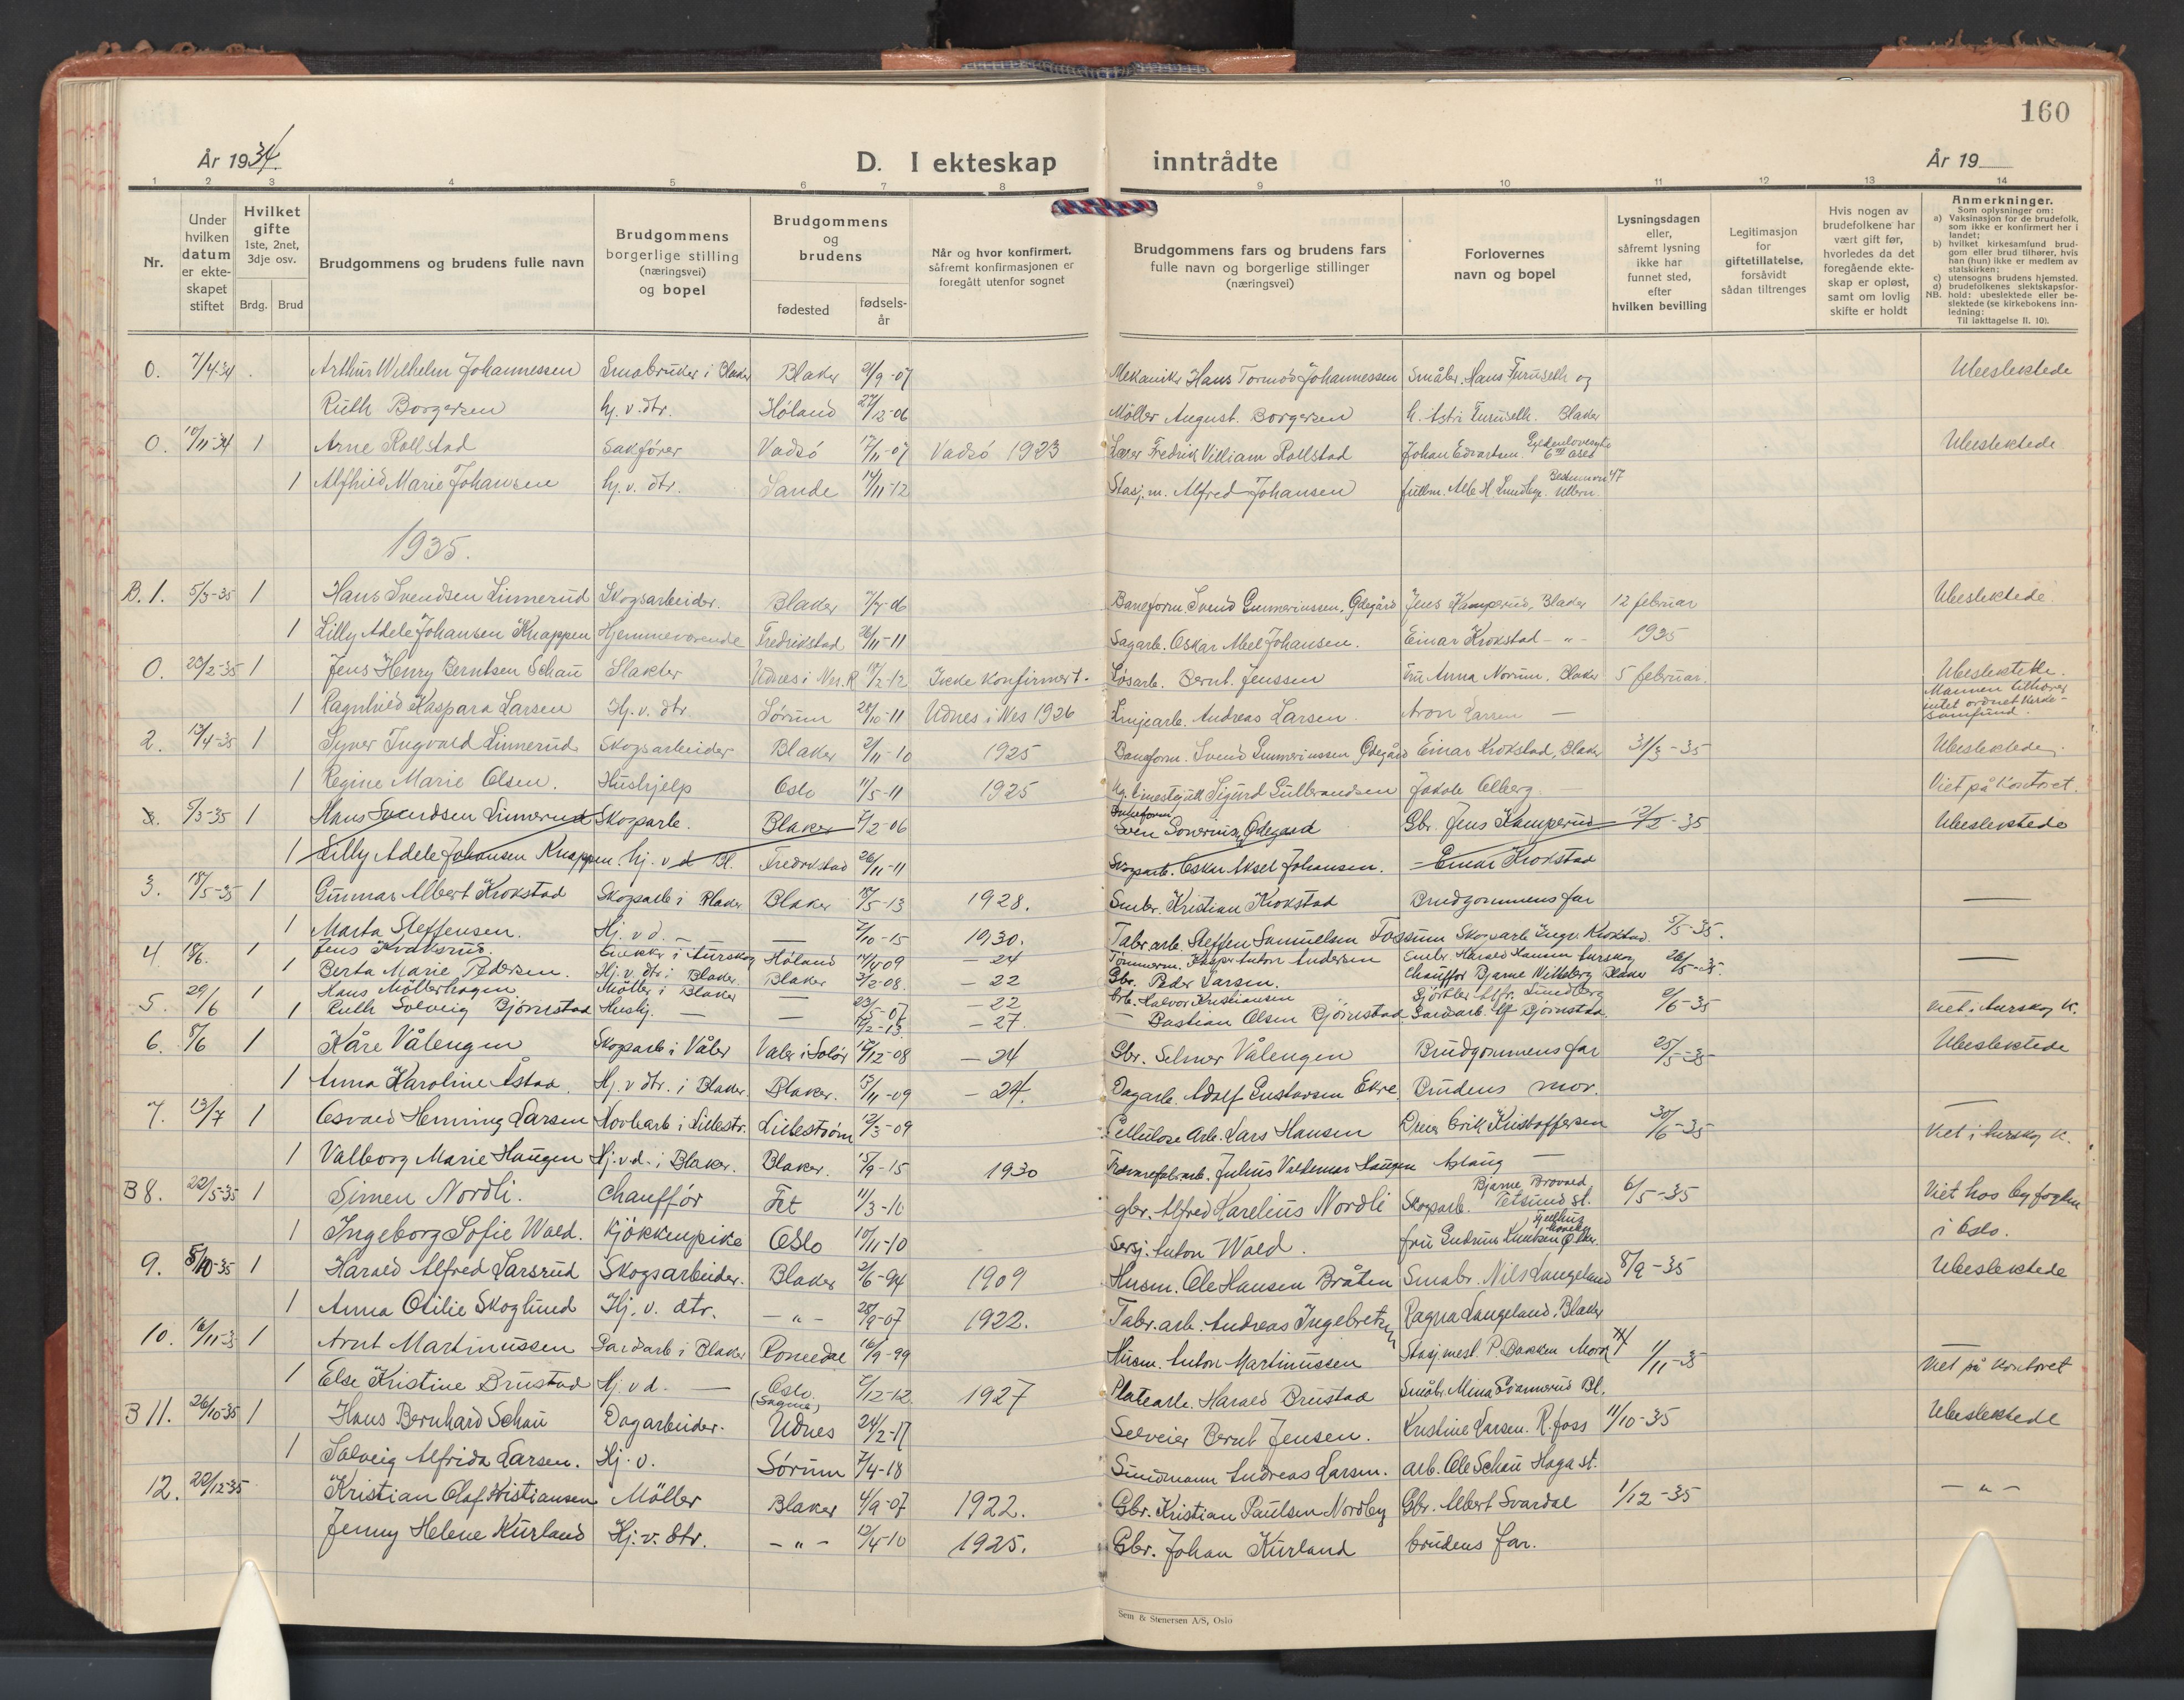 160
År 1934.
D. I ekteskap inntrådte
År 19
1 2 3 4 5 6 7 8 9 10 11 12 13 14
Nr.
Under hvilken datum er ekteskapet stiftet
Hvilket gifte
1ste, 2net, 3dje osv.
Brdg. Brud
Brudgommens og brudens fulle navn
Brudgommens borgerlige stilling (næringsvei) og bopel
Brudgommens og brudens
fødested
fødselsår
Når og hvor konfirmert, såfremt konfirmasjonen er foregått utenfor sognet
Brudgommens fars og brudens fars fulle navn og borgerlige stillinger (næringsvei)
Forlovernes navn og bopel
Lysningsdagen eller, såfremt lysning ikke har funnet sted, efter hvilken bevilling
Legitimasjon for giftetillatelse, forsåvidt sådan tiltrenges
Hvis nogen av brudefolkene har vært gift før, hvorledes da det foregående ekteskap er opløst, samt om lovlig skifte er holdt
Anmerkninger.
Som oplysninger om:
a) Vaksinasjon for de brudefolk, som ikke er konfirmert her i landet;
b) hvilket kirkesamfund brudgom eller brud tilhører, hvis han (hun) ikke er medlem av statskirken;
c) utensogns brudens hjemsted.
d) brudefolkenes slektskapsforhold: ubeslektede eller beslektede (se kirkebokens innledning:
NB.
Til iakttagelse II. 10).
0. 7/4 34 Arthur Wilhelm Johannessen Småbruker i Blaker Blaker 9/9-07 Mekaniker Hans Tormod Johannessen Småbr. Hans Furuseth og Ubeslektede
Ruth Borgersen hj. v. dtr. Høland 27/12-06 Møller August Borgersen h. Astri Furuseth. Blaker
0. 10/11-34 1 Arne Rollstad Sakfører Vadsö 17/11-07 Vadsö 1923 Lærer Fredrik Villiam Rollstad Johan Edvartsen. Ubeslektede
1 Alfhild Marie Johansen hj. v. dtr. Sande 14/11-12 Stasj.m. Alfred Johansen
1935.
B. 1. 5/3-35 1 Hans Svendsen Linnerud Skogsarbeider. Blaker 7/2-06 Baneform. Svend Gunneriussen, Ødegård Jens Kamperud, Blaker 12 februar Ubeslektede
1 Lilly Adele Johansen Knappen Hjemmeværende Fredrikstad 26/11-11 Sagarb. Oskar Axel Johansen. Einar Krokstad - " - 1935
0. 23/2-35 1 Jens Henry Berntsen Schau Slakter Udnes i Nes. R 17/2-12 Ikke konfirmert. Løsarb. Bernt Jenssen Fru Anna Norum. Blaker 5 februar. Ubeslektede.
1 Ragnhild Kaspara Larsen Hj. v. dtr. Sørum 28/10-11 Udnes i Nes 1926 Linjearb. Andreas Larsen. Aron Larsen — Mannen tilhører intet ordnet kirkesamfund.
2. 13/4-35 1 Syver Ingvald Linnerud Skogsarbeider Blaker 2/11-10 1925 Baneform. Svend Gunneriussen, Ødegård Einar Krokstad, Blaker 31/3-35 Ubeslektede.
1 Regine Marie Olsen. Hushjelp Oslo 11/5-11 1925 Sigurd Gulbrandsen Jakob Olberg. Viet på kontoret.
3. 5/3-35 1 Hans Svendsen Linnerud Skogarb. Blaker 7/2-06 Baneform Ødegaard Gbr. Jens Kamperud 12/2-35 Ubeslektede
1 Lilly Adele Johansen Knappen hj. v d Bl. Fredrikstad 26/11-11 Skogarb. Oskar Aksel Johansen. — Einar Krokstad
3. 18/5-35 1 Gunnar Albert Krokstad Skogsarb i Blaker Blaker 18/5-13 1928. Småbr. Kristian Krokstad Brudgommens far —
1 Marta Steffensen. Hj. v d. — — 7/10-15 1930. Fabr.arb. Steffen Samuelsen Fossum Skogarb Ingv. Krokstad. 5/5-35.
4 18/6. 1 Jens Kvaksrud. i Aurskog Høland 14/4 09 - 24 Tømmerm. Kasper Anton Andersen Småbr. Harald Hansen Aurskog 26/5-35. —
1 Berta Marie Pedersen. Hj. v. dtr i Blaker. Blaker 3/2-08. - 22 Gbr. Peder Larsen. Chauffør Bjarne Blaker
5. 29/6 1 Hans Möllerhagen Möller i Blaker — 23/5-07 - 22 Arb. Halvor Kristiansen Lundberg 2/6-35 viet i Aurskog k.
1 Ruth Solveig Bjørnstad Hushj. — — 18/2-13 - 27. — Bastian Olsen Bjørnstad. Gårdsarb. Bjørnstad.
6. 8/6 1 Kåre Vålengen Skogarb i Våler Våler i Solør 17/12-08 - 24 Gbr. Selmer Vålengen Brudgommens far 25/5-35 Ubeslektede
1 Anna Karoline Åstad. Hj. v dtr. i Blaker. Blaker. 13/11-09 - 24. Dagarb. Adolf Gustavsen Ekre Brudens mor.
7. 13/7 1 Osvald Henning Larsen i Lillestr. Lillestrøm 12/3-09 Cellulose Arb. Lars Hansen Erik Kristoffersen 30/6-35 —
1 Valborg Marie Haugen Hj. v. d. i Blaker. Blaker. 15/9-15 1930 Julius Valdemar Haugen Aslaug — Viet i Aurskog k.
B 8. 22/5-35 1 Simen Nordli. Chauffør Fet 11/3-10 gbr. Alfred Karelius Nordli Skogarb. Bjarne Brovold Tetsund st. 6/5-35 Viet hos byfogden
1 Ingeborg Sofie Wold. Kjøkkenpike Oslo 10/11-10 Sersj. Anton Wold. fru Gudrun Knutsen i Oslo.
9. 5/10-35 1 Harald Alfred Larsrud Skogsarbeider. Blaker 2/6-94 1909 Husm. Ole Hansen Bråten Småbr. Nils Langeland 8/9-35 Ubeslektede
1 Anna Otilie Skoglund Hj. v. dtr. - " - 28/9-07 1922. Fabr.arb. Andreas Ingebretsen Ragna Langeland, Blaker
10. 16/11-35 1 Arnt Martinussen Gårdarb i Blaker Romedal 16/9-99 Husm. Anton Martinussen Stasj.mest. P. Bakken 1/11-35 —
1 Else Kristine Brustad Hj. v d. — Oslo. (Sagene) 2/12-12 1927 Platearb. Harald Brustad Småbr. Mina Bl. Viet på kontoret
B 11. 26/10-35 1 Hans Bernhard Schau Dagarbeider. Udnes 24/2-17 Selveier Bernt Jensen. Kristine Larsen. R.foss 11/10-35 Ubeslektede
1 Solveig Alfrida Larsen. Hj. v. Sørum 7/4-18 Andreas Larsen. arb. Ole Schau Haga st.
12. 29/12-35 Kristian Olaf Kristiansen Möller Blaker 4/9-07 1922. Gbr. Kristian Paulsen Nordby Gbr. Albert Svardal 1/12-35 - " -
Jenny Helene Kurland Hj. v. dtr. - " - 12/4-10 1925. Gbr. Johan Kurland brudens far.
Sem & Stenersen A/S, Oslo